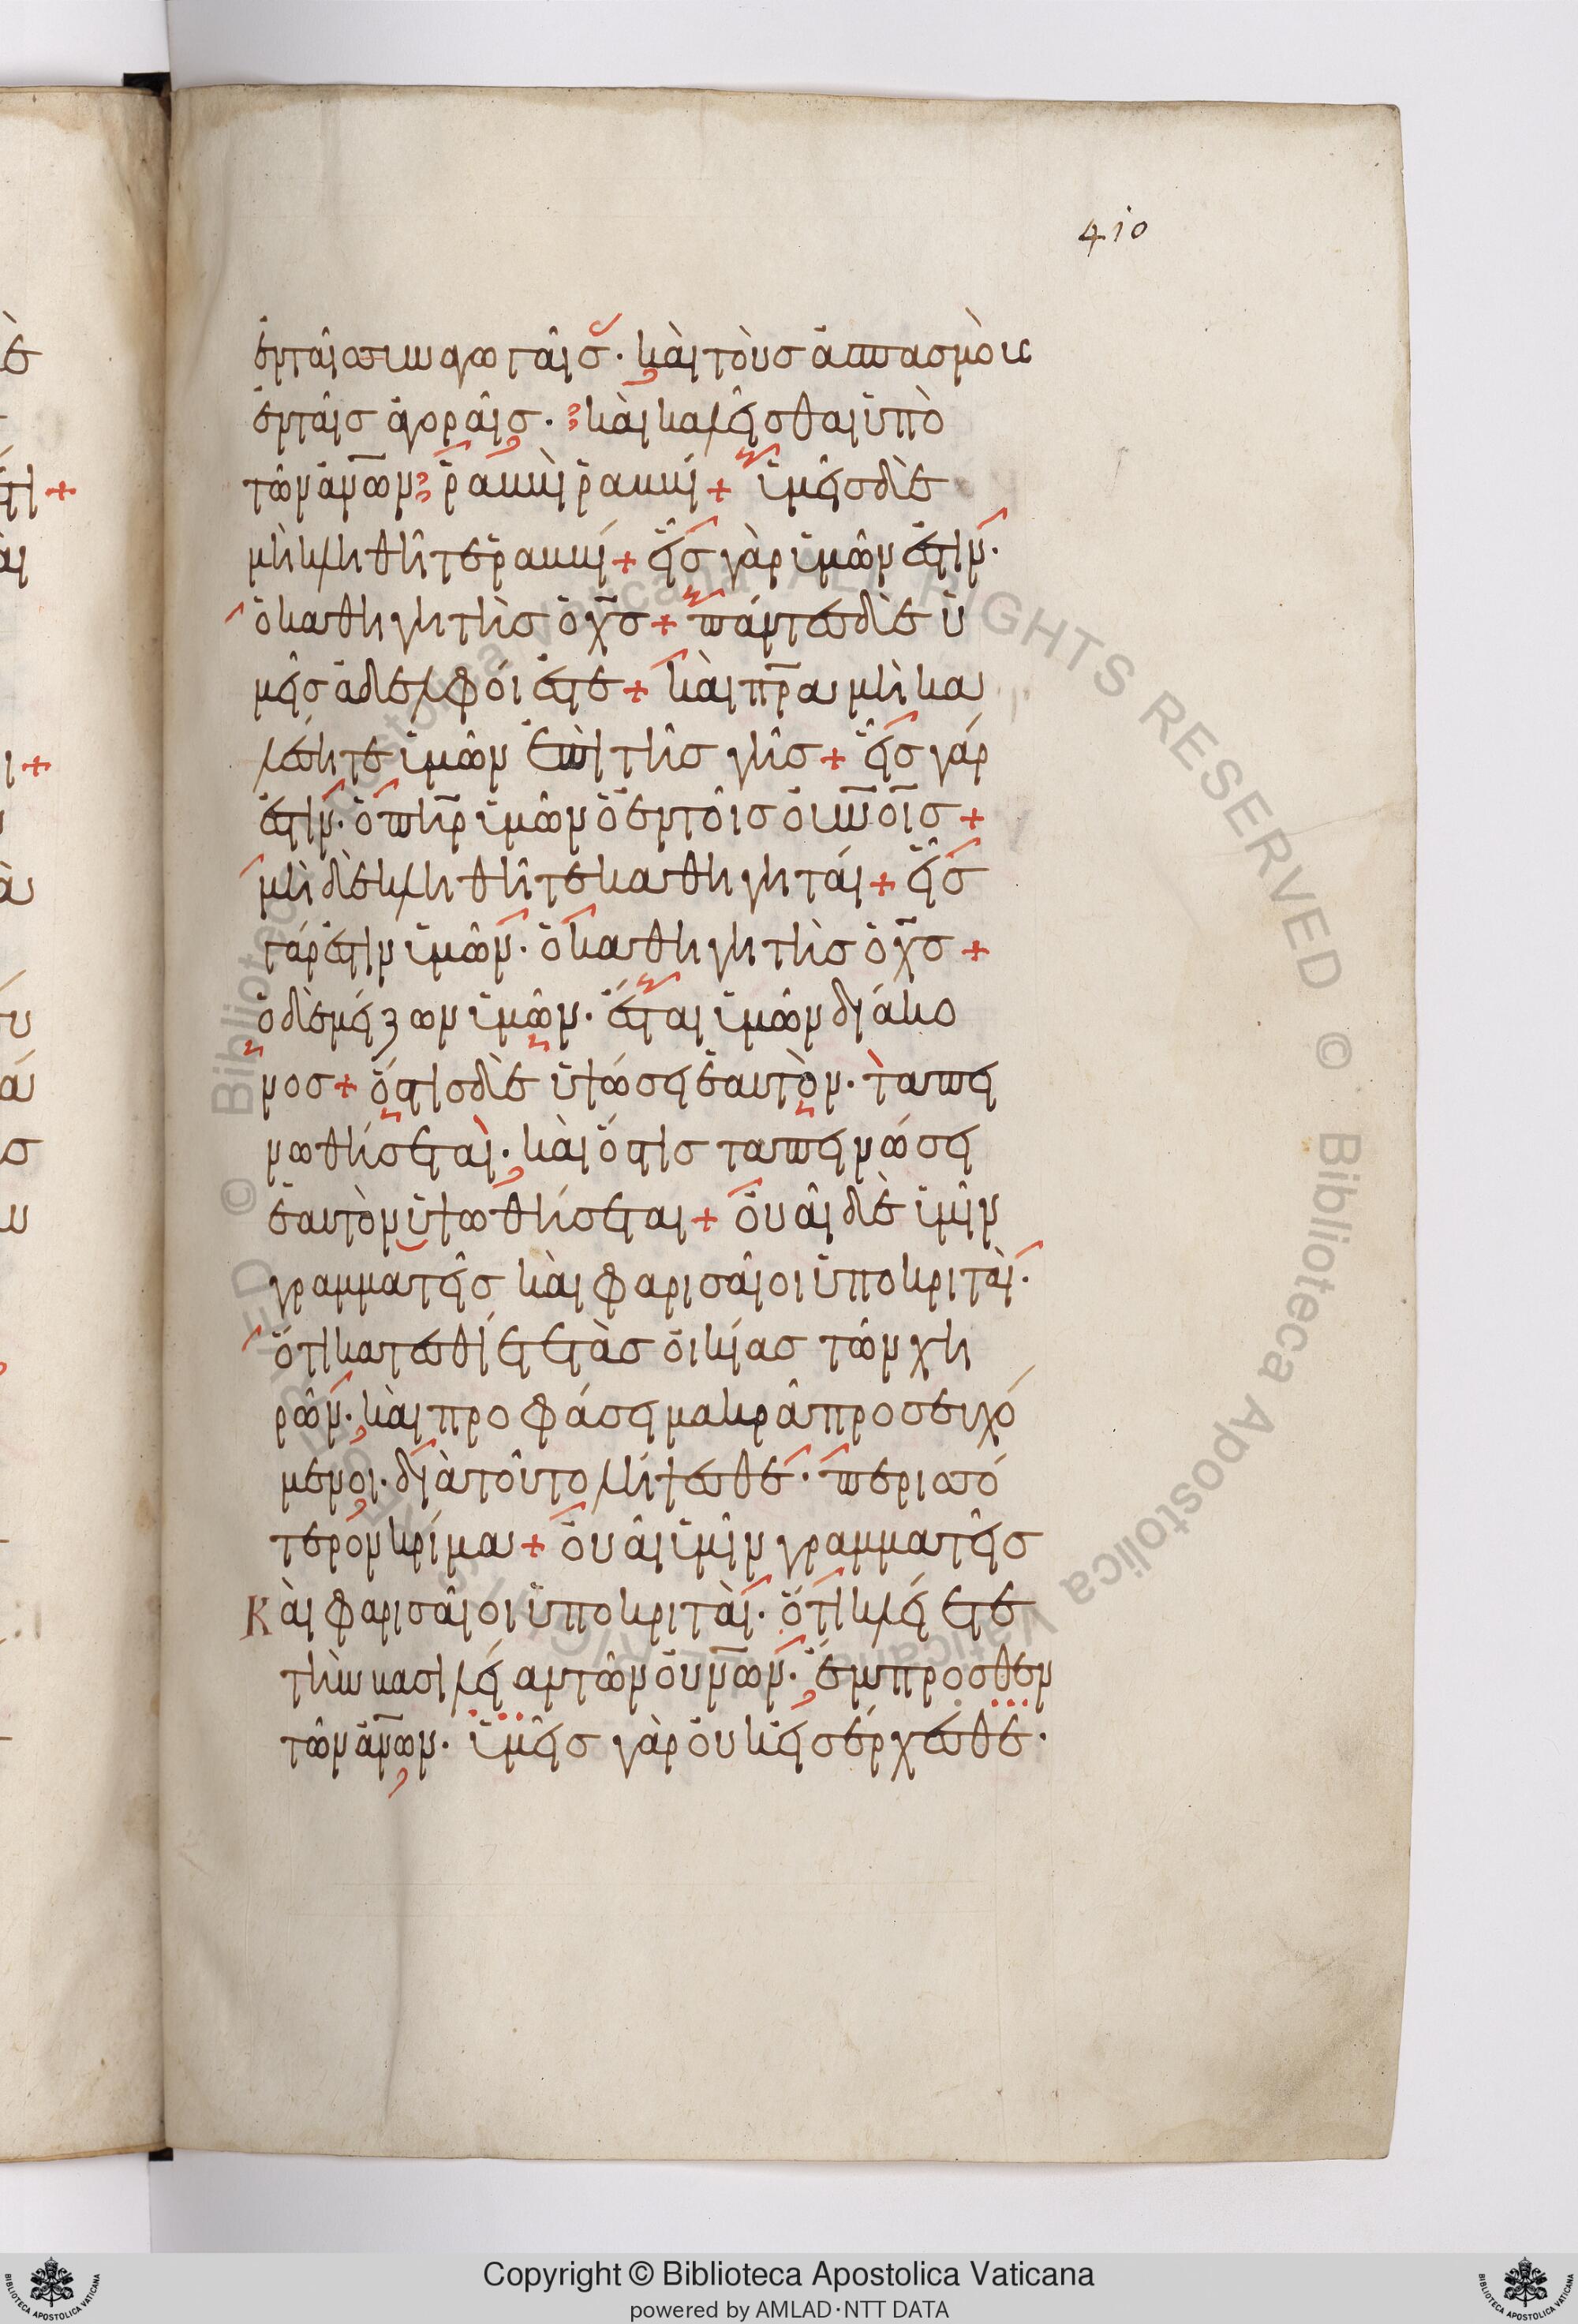 410
ἐν ταῖς συναγωγαῖς· καὶ τοὺς ἀσπασμοὺς
ἐν ταῖς ἀγοραῖς· καὶ καλεῖσθαι ὑπὸ
τῶν ἀν̅ων ῥαββὶ ῥαββί + ὑμεῖς δὲ
μὴ κληθῆτε ῥαββί + εἷς γὰρ ὑμῶν ἐστιν·
ὁ καθηγητὴς ὁ χ̅ς + πάντες δὲ ὑ
μεῖς ἀδελφοί ἐστε + καὶ π̅ρα μὴ κα
λέσητε ὑμῶν ἐπὶ τῆς γῆς + εἷς γάρ
ἐστιν· ὁ π̅ηρ ὑμῶν ὁ ἐν τοῖς οὐν̅οις +
μὴ δὲ κληθῆτε καθηγηταί + εἷς
γάρ ἐστιν ὑμῶν· ὁ καθηγητὴς ὁ χ̅ς +
ὁ δὲ μείζων ὑμῶν· ἔσται ὑμῶν διάκο
νος + ὅστις δὲ ὑψώσει ἑαυτὸν· ταπει
νωθήσεται· καὶ ὅστις ταπεινώσει
ἑαυτὸν ὑψωθήσεται + οὐαὶ δὲ ὑμῖν
γραμματεῖς καὶ φαρισαῖοι ὑποκριταὶ·
ὅτι κατεσθίετε τὰς οἰκίας τῶν χη
ρῶν· καὶ προφάσει μακρὰ προσευχό
μενοι· διὰ τοῦτο λήψεσθε· περισσό
τερον κρίμα + οὐαὶ ὑμῖν γραμματεῖς
Καὶ φαρισαῖοι ὑποκριταὶ· ὅτι κλείετε
τὴν βασιλείαν τῶν οὐν̅ων· ἔμπροσθεν
τῶν ἀν̅ων· ὑμεῖς γὰρ οὐκ εἰσέρχεσθε·
Copyright © Biblioteca Apostolica Vaticana
powered by AMLAD·NTT DATA